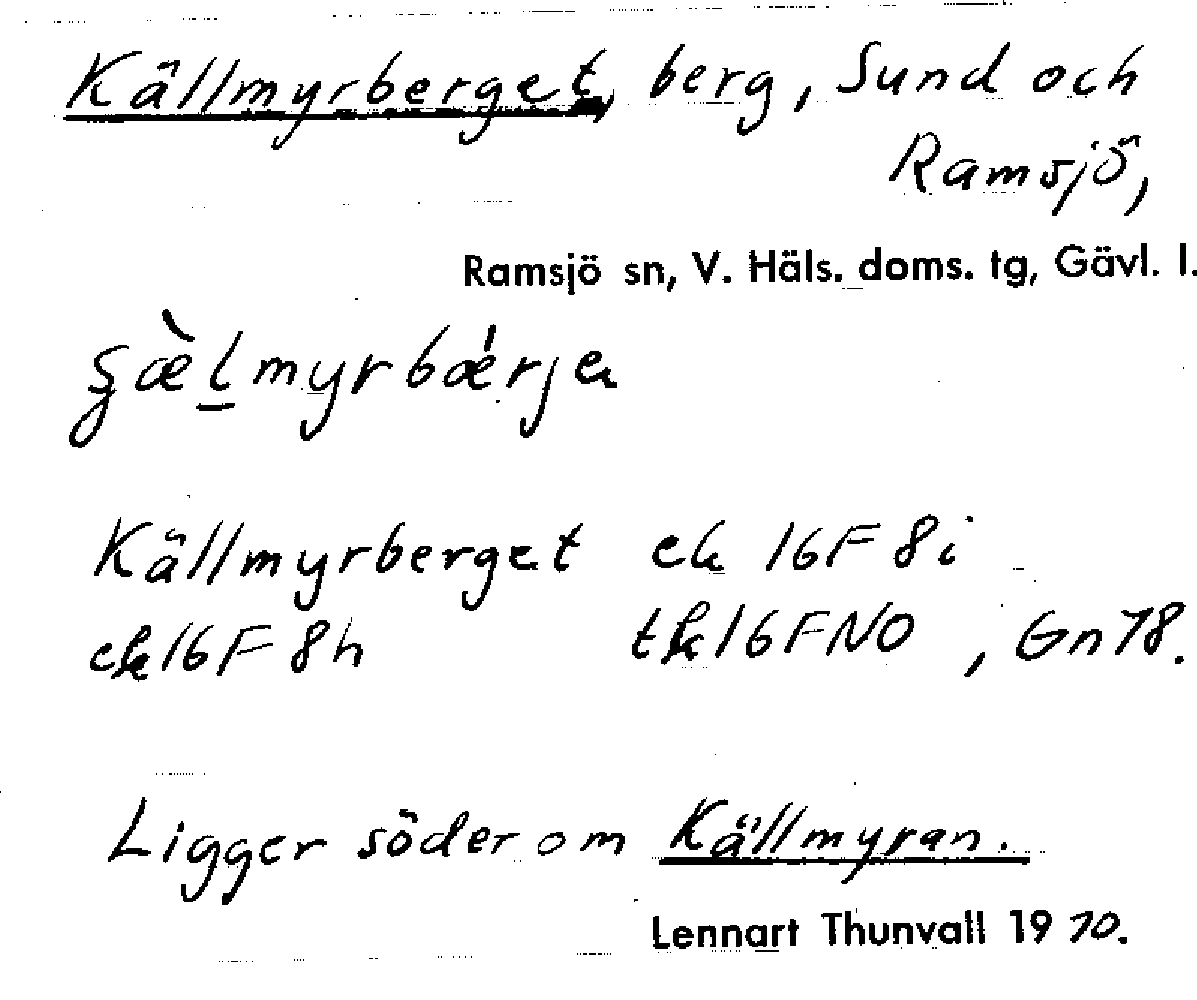 Källmyrberget, berg, Sund och
Ramsjö,
Ramsjö sn, V. Häls. doms. tg, Gävl. l.
Källmyrberget ek 16F 8i
ek 16F 8h tk 16F NO, Gn 78.
Ligger söder om Källmyran.
Lennart Thunvall 1970.